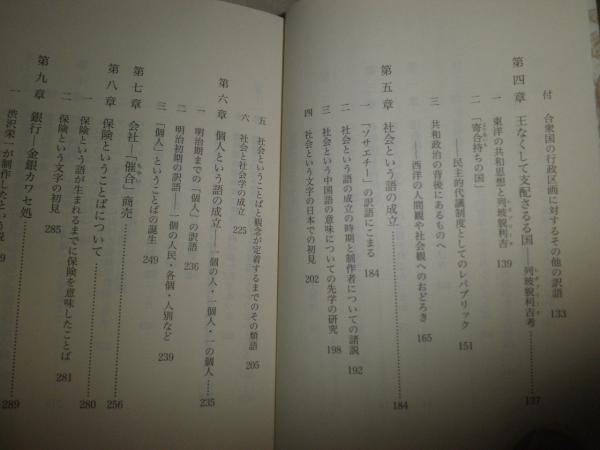 付 合衆国の行政区画に対するその他の訳語 133
第四章 王なくして支配さるる国――列坡貌利吉考 137
レパブリック
一 東洋の共和思想と列坡貌利吉 139
レパブリック
二 「寄合持ちの国」
よりあいもち
――民主的代議制度としてのレパブリック 151
三 共和政治の背後にあるものへ
――西洋の人間観や社会観へのおどろき 165
第五章 社会という語の成立 184
一 「ソサエチー」の訳語にこまる 184
二 社会という語の成立の時期と制作者についての諸説 192
三 社会という中国語の意味についての先学の研究 198
四 社会という文字の日本での初見 202
五 社会ということばと観念が定着するまでのその類語 205
六 社会と社会学の成立 225
第六章 個人という語の成立――一個の人・一個人・一の個人 235
一 明治期までの「個人」の訳語 236
二 明治初期の訳語――一個の人民・各個・人別など 239
三 「個人」ということばの誕生 249
第七章 会社――「催合」商売 256
もやい
第八章 保険ということばについて 280
一 保険という語が生まれるまでに保険を意味したことば 281
二 保険という文字の初見 285
第九章 銀行――金銀カワセ処 289
一 渋沢栄一が制作したという説